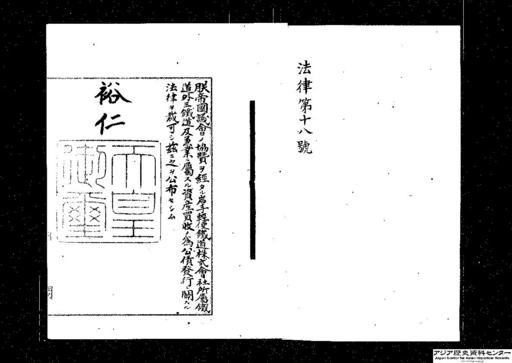 法律第十八號
朕帝國議會ノ協贊ヲ經タル岩手輕便鐵道株式會社所屬鐵
道外三鐵道及兼業ニ屬スル資産買收ノ爲公債發行ニ關スル
法律ヲ裁可シ茲ニ之ヲ公布セシム
裕仁
天皇
御璽
アジア歴史資料センター
Japan Center for Asian Historical Records